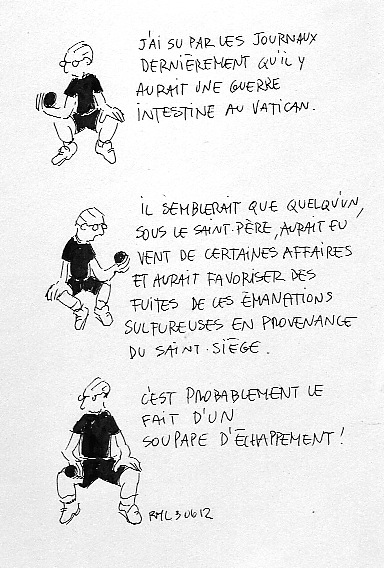 J'AI SU PAR LES JOURNAUX
DERNIÈREMENT QU'IL Y
AURAIT UNE GUERRE
INTESTINE AU VATICAN.
IL SEMBLERAIT QUE QUELQU'UN,
SOUS LE SAINT-PÈRE, AURAIT EU
VENT DE CERTAINES AFFAIRES
ET AURAIT FAVORISER DES
FUITES DE CES ÉMANATIONS
SULFUREUSES EN PROVENANCE
DU SAINT-SIÈGE.
C'EST PROBABLEMENT LE
FAIT D'UN
SOUPAPE D'ÉCHAPPEMENT!
RML30612